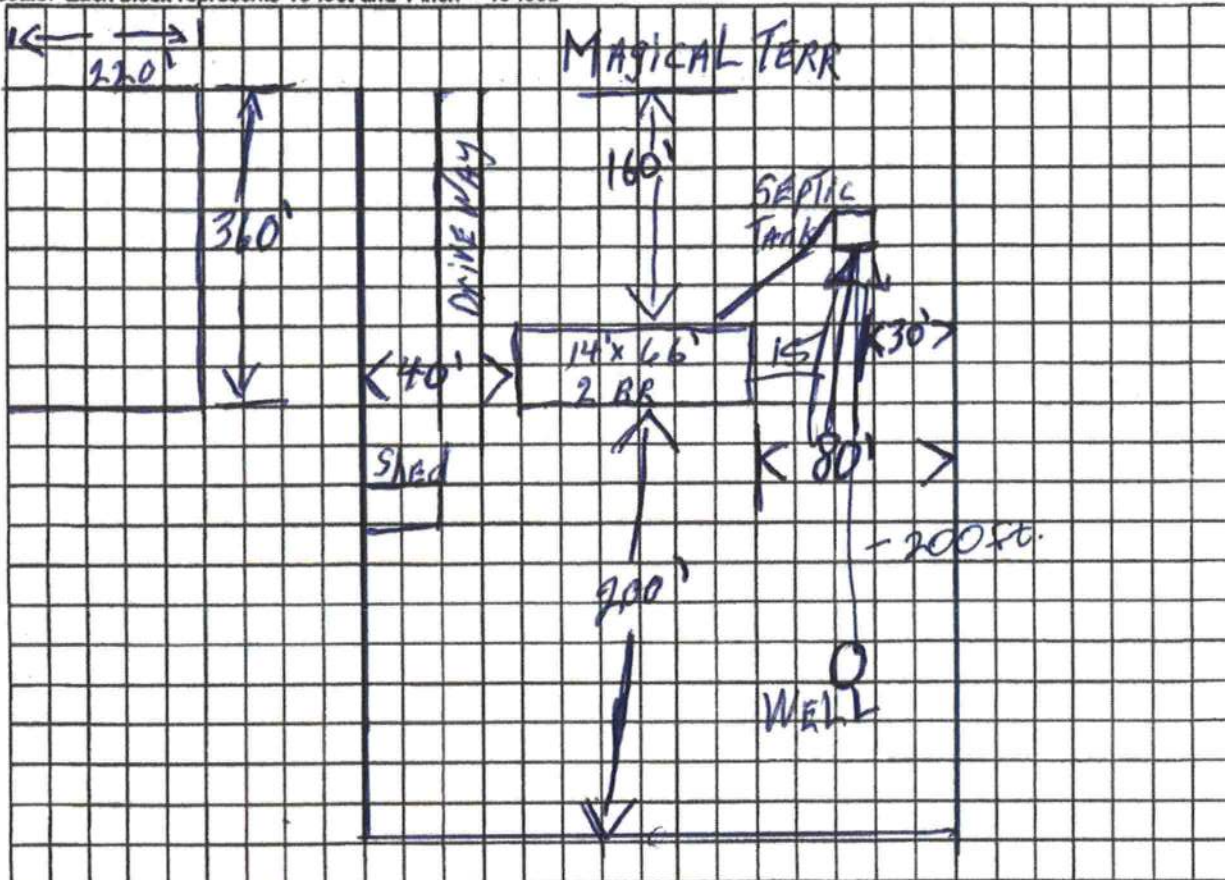 220'
MAGICAL TERR
360'
DRIVE WAY
160'
SEPTIC
TANK
14' x 66'
2 BR
15'
30'
40'
80'
Shed
- 200 ft.
200'
WELL